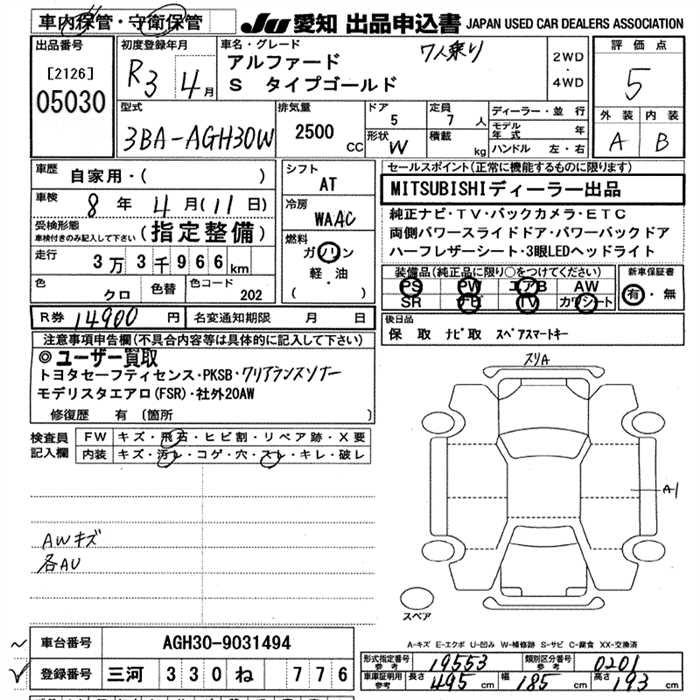 車内保管・守衛保管
JU 愛知 出品申込書 JAPAN USED CAR DEALERS ASSOCIATION
出品番号
[2126]
05030
初度登録年月
R3 4月
車名・グレード
アルファード 7人乗り
S タイプゴールド
2WD
・
4WD
評価点
5
外装 内装
A B
型式
3BA-AGH30W
排気量
2500 CC
ドア
5
定員
7 人
形状
W
積載
kg
ディーラー・並行
モデル年式 年
ハンドル 左・右
車歴
自家用・( )
車検
8 年 4 月 (11 日)
受検形態
車検付きのみ記入して下さい
(指定整備)
走行
3万3千966km
色
クロ
色替
色コード
202
シフト
AT
冷房
WAAC
燃料
ガソリン
軽・油
( )
セールスポイント(正常に機能するものに限り)
MITSUBISHIディーラー出品
純正ナビ・TV・バックカメラ・ETC
両側パワースライドドア・パワーバックドア
ハーフレザーシート・3眼LEDヘッドライト
装備品(純正品に限り○をつけてください)
PS PW エアB AW
SR ナビ TV カワシート
新車保証書
有・無
後日品
保 取 ナビ取 スペアスマートキー
R券 14900 円
名変通知期限 月 日
注意事項申告欄(不具合内容等は具体的に記入して下さい)
◎ユーザー買取
トヨタセーフティセンス・PKSB・クリアランスソナー
モデリスタエアロ(FSR)・社外20AW
修復歴 有 (箇所
検査員
記入欄
FW キズ・飛石・ヒビ割・リペア跡・X要
内装 キズ・汚レ・コゲ・穴・スレ・キレ・破レ
AWキズ
各AU
スリA
A1
スペア
A-キズ E-エクボ U-凹み W-補修跡 S-サビ C-腐食 XX-交換済
車台番号 AGH30-9031494
登録番号 三河 330 ね 776
形式指定番号
参考
19553
類別区分番号
参考
0201
車庫証明用
参考
長さ 495 cm 幅 185 cm 高さ 193 cm